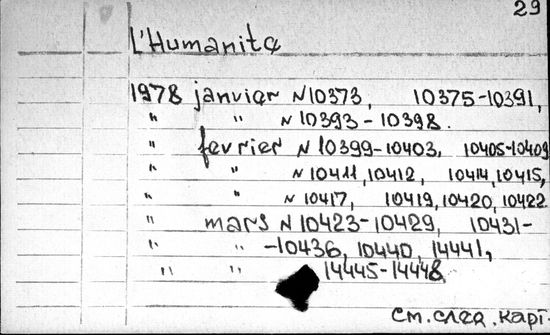 29
L'Humanita
1978 janvier N10373, 10375-10391,
" " N10393-10398.
" fevrier N10399-10403, 10405-10409
" " N10411,10412, 10414,10415,
" " N10417, 10419,10420,10422
" mars N10423-10429, 10431-
" " -10436, 10440, 14441,
" " 14445-14448
см. след. карт.